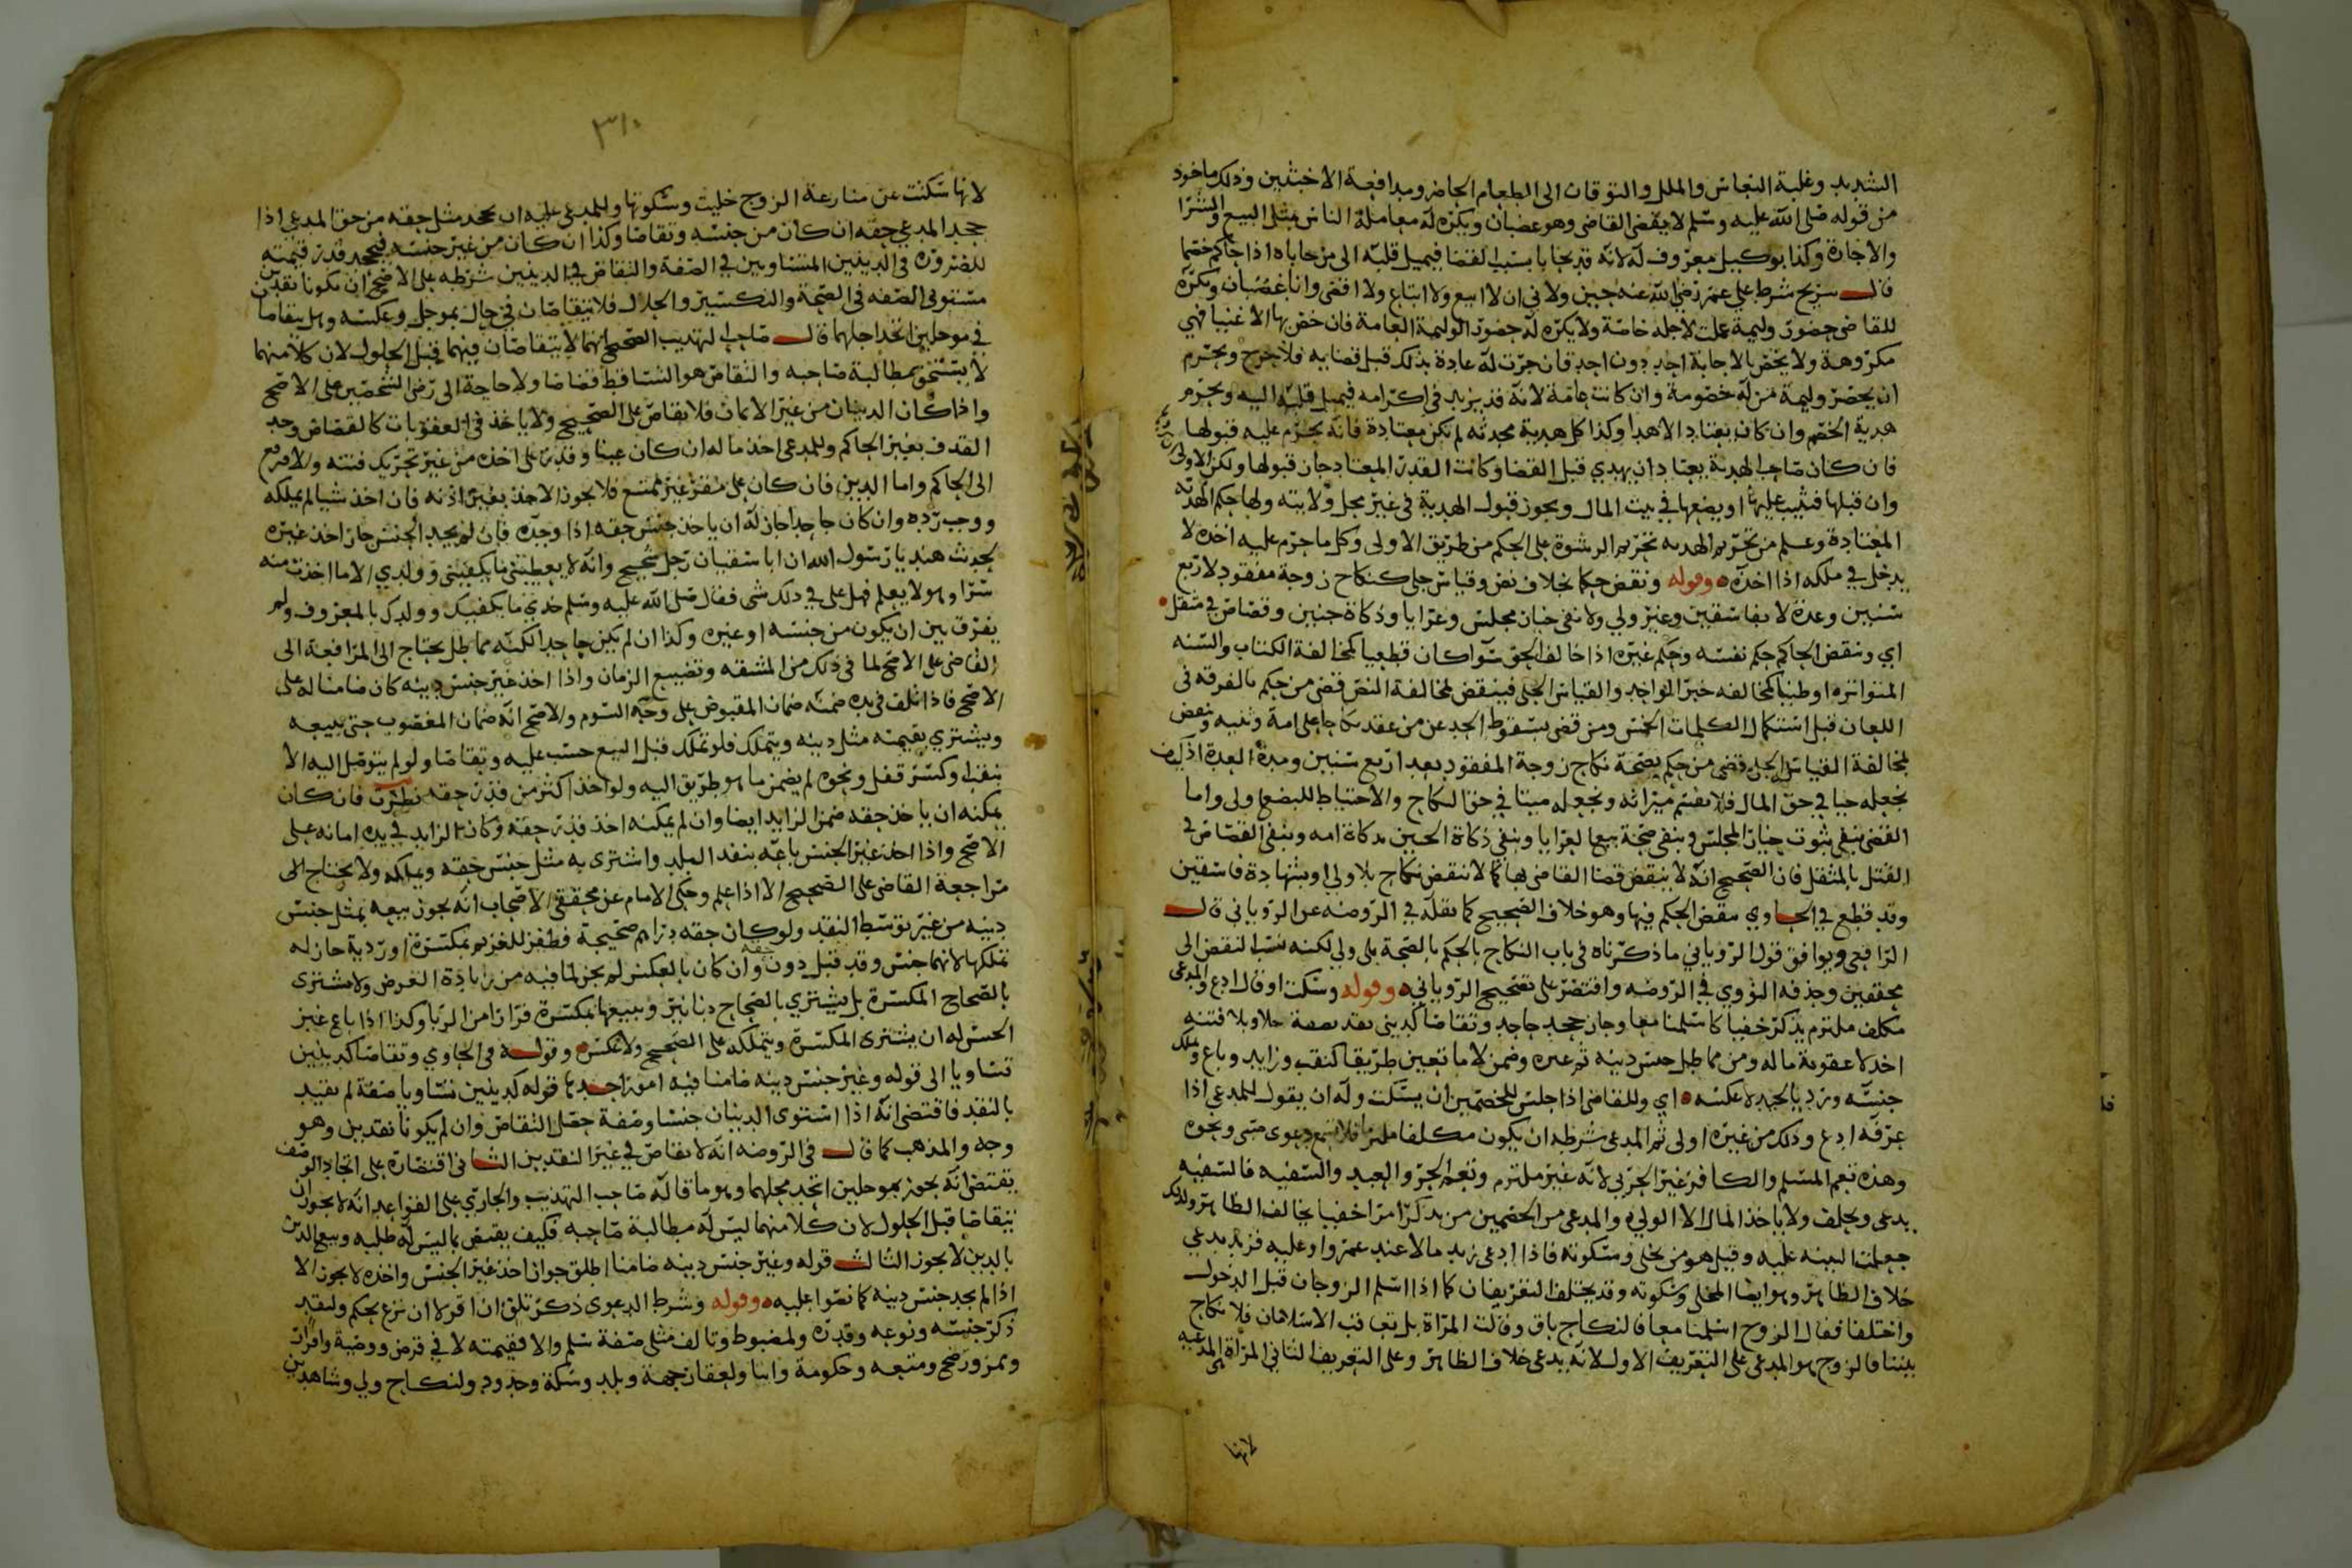 الشديد وغلبة النعاس والملل والتوقان الى الطعام الحاضر ومدافعة الاخبثين وذلك ماخوذ
من قوله صلى الله عليه وسلم لا يقضى القاضى وهو غضبان ويكره له معاملة الناس مثل البيع والشرا
والاجارة وكذا بوكيل معروف له لانه قد يحابا بسبب القضا فيميل قلبه الى من حاباه اذا حاكم خصما
قال شريح شرط علي عمر رضى الله عنه حين ولاني ان لا ابيع ولا ابتاع ولا اقضى وانا غضبان ويكره
للقاضى حضور وليمة عملت لاجله خاصة ولا يكره له حضور الوليمة العامة فان خص بها الاغنيا فهي
مكروهة ولا يخص بالاجابة احد دون احد فان جرت له عادة بذلك قبل قضايه فلا حرج ويحرم
ان يحضر وليمة من له خصومة وان كانت عامة لانه قد يزيد فى اكرامه فيميل قلبه اليه ويحرم
هدية الخصم وان كان يعتاد الاهدا وكذا كل هدية محدثه لم تكن معتادة فانه يحرم عليه قبولها
فان كان صاحب الهدية يعتاد ان يهدي قبل القضا وكانت القدر المعتاد جاز قبولها ولكن الاولى
وان قبلها فيثيب عليها او يضعها في بيت المال ويجوز قبول الهدية فى غير محل ولايته ولها حكم الهديه
المعتادة وعلم من تحريم الهديه تحريم الرشوة على الحكم من طريق الاولى وكل ما حرم عليه اخذه لا
يدخل في ملكه اذا اخذه وقوله ونقض حكما بخلاف نص وقياس جلي كنكاح زوجة مفقود لاربع
سنين وعدة لا بفاسقين وغير ولي ولا نفى خيار مجلس وعرايا وذكاة جنين وقصاص في مثقل
اي وينقض الحاكم حكم نفسه وحكم غيره اذا خالف الحق سوا كان قطعيا كمخالفة الكتاب والسنه
المتواتره او ظنيا كمخالفه خبر الواحد والقياس الجلى فينقض لمخالفة النص قضى من حكم بالفرقه فى
اللعان قبل استكمال الكلمات الخمس ومن قضى بسقوط الحد عن من عقد نكاحا على امه وبنيه ونقض
لمخالفة القياس الجلي قضى من حكم بصحة نكاح زوجة المفقود بعد اربع سنين ومدة العدة اذ كيف
نجعله حيا في حق المال فلا يقسم ميراثه ونجعله ميتا في حق النكاح والاحتياط للبضع اولى واما
القضى بنفى ثبوت خيار المجلس وبنفى صحة بيع العرايا وبنفي ذكاة الجنين بذكاة امه وبنفى القصاص فى
القتل بالمثقل فان الصحيح انه لا ينقض قضا القاضى بها كما لا ننقض نكاح بلا ولي او بشهادة فاسقين
وقد قطع في الحاوي بنقض الحكم فيها وهو خلاف الصحيح كما نقله في الروضه عن الروياني قال
الرافعى ويوافق قول الروياني ما ذكرناه فى باب النكاح بالحكم بالصحة بلى ولي لكنه نسب النقض الى
محققين وحذفه النووي في الروضه واقتصر على تصحيح الروياني وقوله وسكت او قال ادع والمدعى
مكلف ملتزم يذكر خفيا كاسلمنا معا وجاز جحد جاحد وتقاصا كدينى نقد بصفة حلا وبلا فتنه
اخذ لا عقوبة ماله ومن مماطل جنس دينه ثم غيره وضمن لا ما تعين طريقا كنقب وزايد وباع وملك
جنسه ورد بالجيد لا عكسه اي وللقاضى اذا جلس للخصمين ان يسكت وله ان يقول للمدعى اذا
عرفه ادع وذلك من غيره اولى ثم المدعى شرطه ان يكون مكلفا ملتزما فلا تسمع دعوى صبى ونحوه
وهذه تعم المسلم والكافر غير الحربي لانه غير ملتزم وتعم الحر والعبد والسفيه فالسفيه
يدعى ويحلف ولا ياخذ المال الا الولي والمدعى من الخصمين من يذكر امرا خفيا يخالف الظاهر ولذلك
جعلت البينه عليه وقيل هو من يخلى وسكوته فاذا ادعى زيد مالا عند عمرو او عليه فزيد يدعي
خلاف الظاهر وهو ايضا المخلى وسكوته وقد يختلف التعريفان كما اذا اسلم الزوجان قبل الدخول
واختلفا فقال الزوج اسلمنا معا فالنكاح باق وقالت المراة بل تعاقب الاسلامان فلا نكاح
بيننا فالزوج هو المدعى على التعريف الاول لانه يدعى خلاف الظاهر وعلى التعريف الثاني المراة المدعيه
لانها
٣١٠
لانها سكتت عن منازعة الزوج خليت وسكوتها وللمدعى عليه ان يجحد مثل حقه من حق المدعى اذا
جحد المدعي حقه ان كان من جنسه وتقاصا وكذا ان كان من غير جنسه فيجحد قدر قيمته
للضروره فى الدينين المتساويين في الصفة والتقاص في الدينين شرطه على الاصح ان يكونا نقدين
مستوى الصفه فى الصحة والتكسير والحلال فلا يتقاصان فى حال بموجل وعكسه وهل يتقاصا
في موجلين اتحد اجلهما قال صاحب التهذيب الصحيح انهما لا يتقاصان فيهما قبل الحلول لان كلا منهما
لا يستحق مطالبة صاحبه والتقاص هو التساقط قصاصا ولا حاجة الى رضى الشخصين على الاصح
واذا كان الدينان من غير الاثمان فلا تقاص على الصحيح ولا ياخذ فى العقوبات كالقصاص وحد
القذف بغير الحاكم وللمدعى اخذ ماله ان كان عينا وقدر على اخذه من غير تحريك فتنه والا فرفع
الى الحاكم واما الدين فان كان على مقر غير ممتنع فلا يجوز الاخذ بغير اذنه فان اخذ شيا لم يملكه
ووجب رده وان كان جاحدا جاز له ان ياخذ جنس حقه اذا وجده فان لم يجد الجنس جاز اخذ غيره
لحديث هند يا رسول الله ان ابا سفيان رجل شحيح وانه لا يعطينى ما يكفينى وولدي الا ما اخذت منه
سرا وهو لا يعلم فهل على في ذلك شى فقال صلى الله عليه وسلم خذي ما يكفيك وولدك بالمعروف ولم
يفرق بين ان يكون من جنسه او غيره وكذا ان لم يكن جاحدا لكنه مماطل يحتاج الى المرافعة الى
القاضى على الاصح لما فى ذلك من المشقه وتضييع الزمان واذا اخذ غير جنس دينه كان ضامنا له على
الاصح فاذا تلف فى يده ضمنه ضمان المقبوض على وجه السوم والاصح انه ضمان المغصوب حتى يبيعه
ويشتري بقيمته مثل دينه ويتملك فلو تملك قبل البيع حسب عليه وتقاصا ولو لم يتوصل اليه الا
بنقب او كسر قفل ونحوه لم يضمن ما هو طريق اليه ولو اخذ اكثر من قدر حقه نظرت فان كان
يمكنه ان ياخذ حقه ضمن الزايد ايضا وان لم يمكنه اخذ قدر حقه وكان الزايد في يده امانه على
الاصح واذا اخذ غير الجنس باعه بنقد البلد واشترى به مثل جنس حقه ويملكه ولا يحتاج الى
مراجعة القاضى على الصحيح الا اذا علم وحكى الامام عن محققى الاصحاب انه يجوز بيعه بمثل جنس
دينه من غير توسط النقد ولو كان حقه دراهم صحيحة فظفر للغريم بمكسرة او ردية جاز له
تملكها لانهما جنس وقد قبل دون حقه وان كان بالعكس لم يجز لما فيه من زيادة الغرض ولا يشترى
بالصحاح المكسرة بل يشتري بالصحاح دنانير ويبيعها بمكسرة فرارا من الربا وكذا اذا باع غير
الجنس له ان يشترى المكسرة ويتملكه على الصحيح ولا عكسه وقوله فى الحاوي وتقاصا كدينين
تساويا الى قوله وغير جنس دينه ضامنا فيه امور احدها قوله كدينين تساويا صفة لم يقيد
بالنقد فاقتضى انه اذا استوى الدينان جنسا وصفة حصل التقاص وان لم يكونا نقدين وهو
وجه والمذهب كما قال فى الروضه انه لا تقاص في غير النقدين الثانى اقتصاره على اتحاد الوصف
يقتضى انه يجوز بموجلين اتحد محلهما وهو ما قاله صاحب التهذيب والجاري على القواعد انه لا يجوز ان
يتقاصا قبل الحلول لان كلا منهما ليس له مطالبة صاحبه فكيف يقتص بما ليس له طلبه وبيع الدين
بالدين لا يجوز الثالث قوله وغير جنس دينه ضامنا اطلق جواز اخذ غير الجنس واخذه لا يجوز الا
اذا لم يجد جنس دينه كما نصوا عليه وقوله وشرط الدعوى ذكر تلق ان اقر لا ان نزع بحكم ولنقد
ذكر جنسه ونوعه وقدره ولمضبوط وتالف مثلى صفة سلم والا فقيمته لا في فرض ووصية واقرار
وممر ورضخ ومتعه وحكومة واما ولعقار جهة وبلد وسكة وحدود ولنكاح ولي وشاهدين